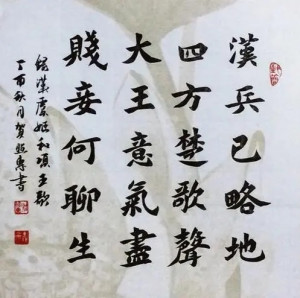 漢兵已略地
四方楚歌聲
大王意氣盡
賤妾何聊生
錄漢虞姬和項王歌
丁酉秋月賀照專書